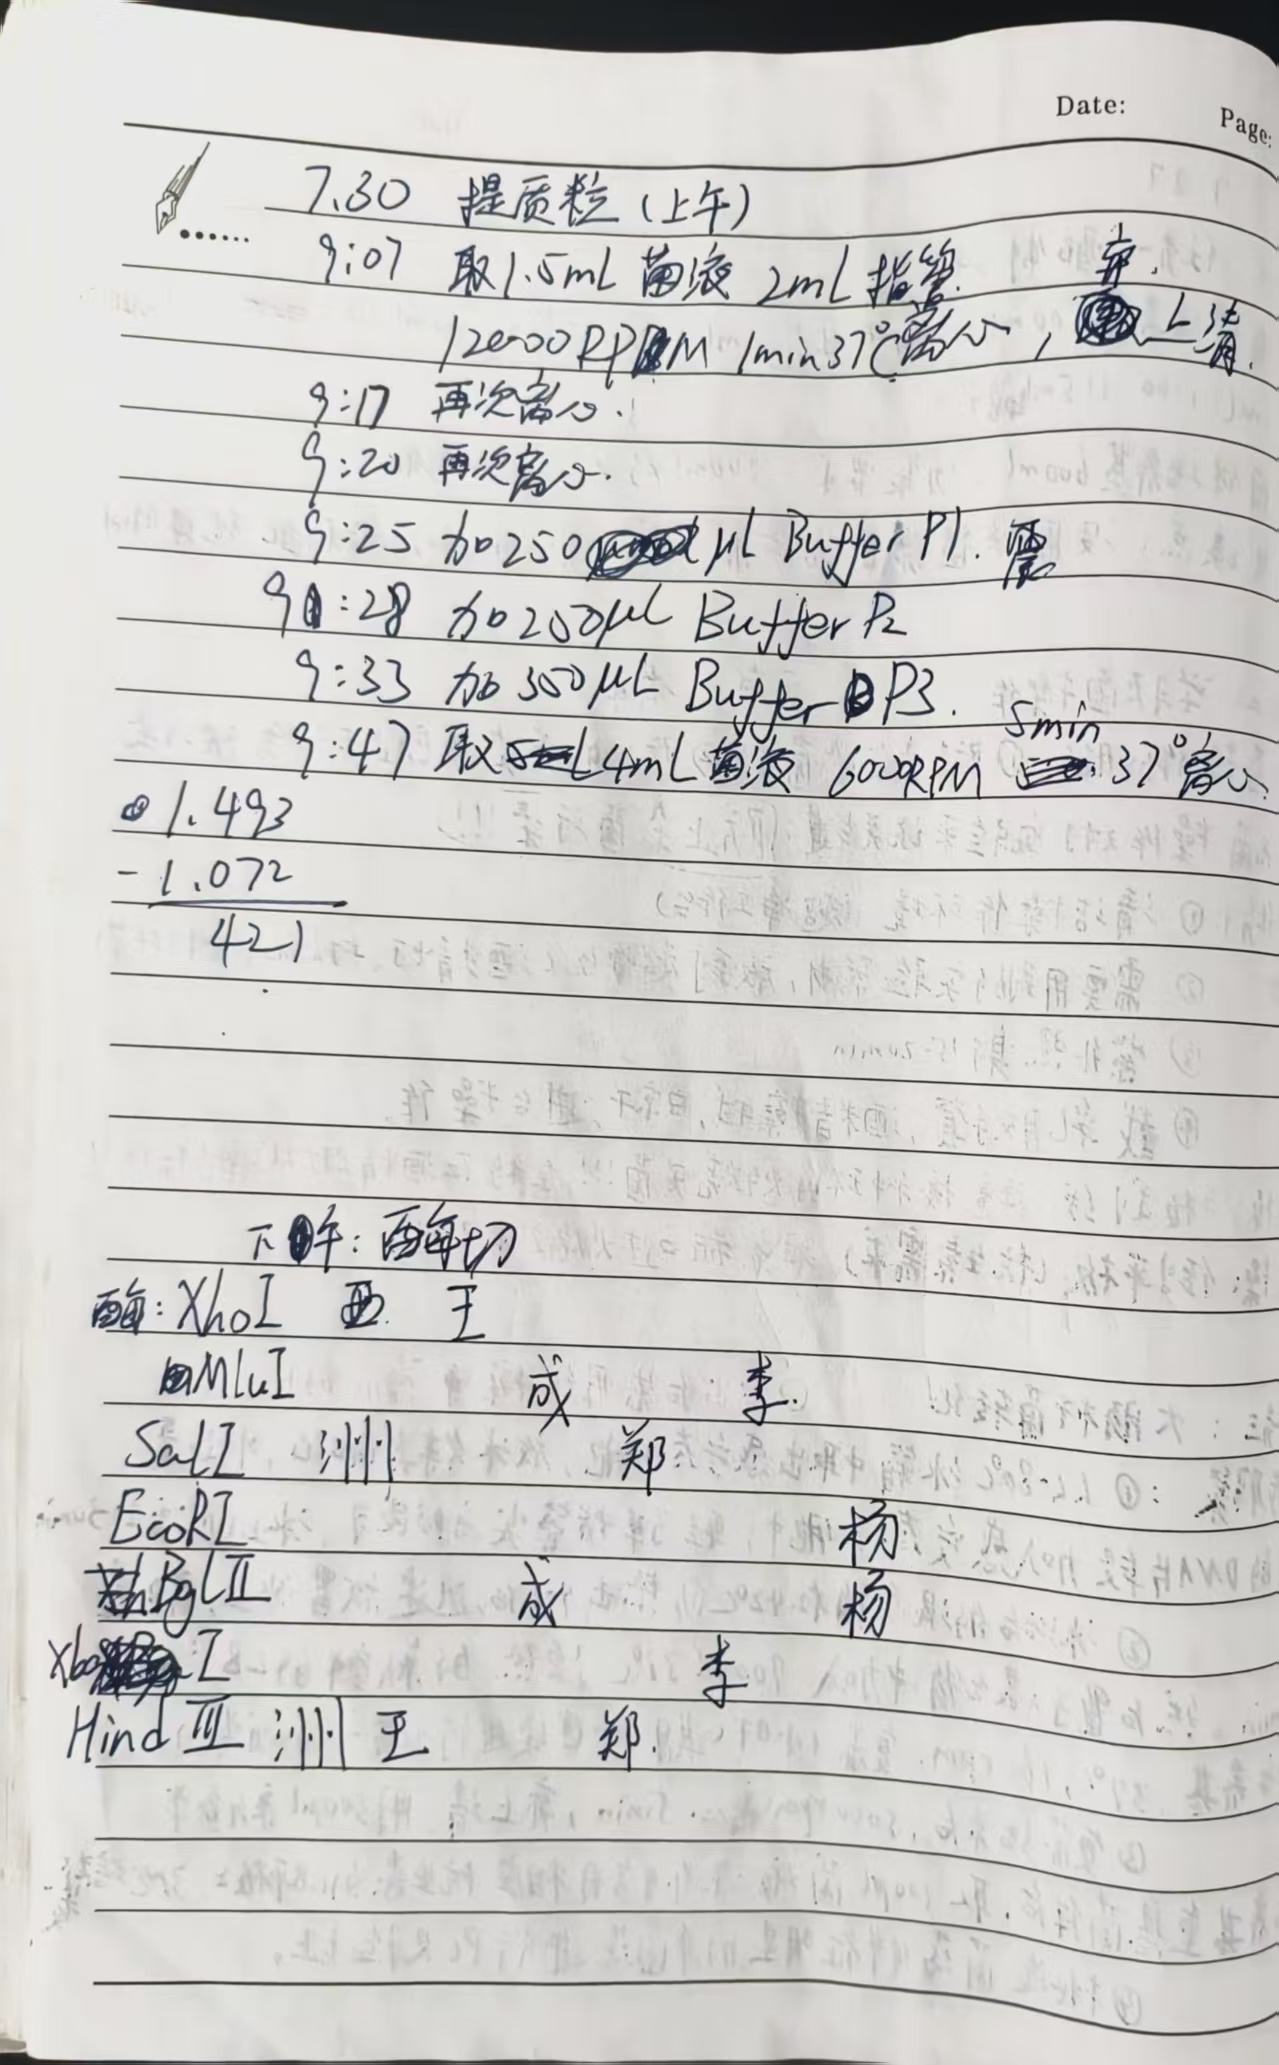 Date:
Page:
7.30 提质粒(上午)
9:07 取1.5mL 菌液 2mL 指管 弃.
12000RPM 1min 37℃离心, 上清.
9:17 再次离心.
9:20 再次离心.
9:25 加250 μL Buffer P1. 震
9:28 加250μL Buffer P2
9:33 加350μL Buffer P3.
9:47 取4mL 菌液 6000RPM 5min 37°离心.
1.493
-1.072
421
下午: 酶切
酶: XhoI 亚 王
MluI 成 李.
SalI 洲 郑
EcoRI 杨
BglII 成 杨
XbaI 李
Hind III 洲 王 郑.